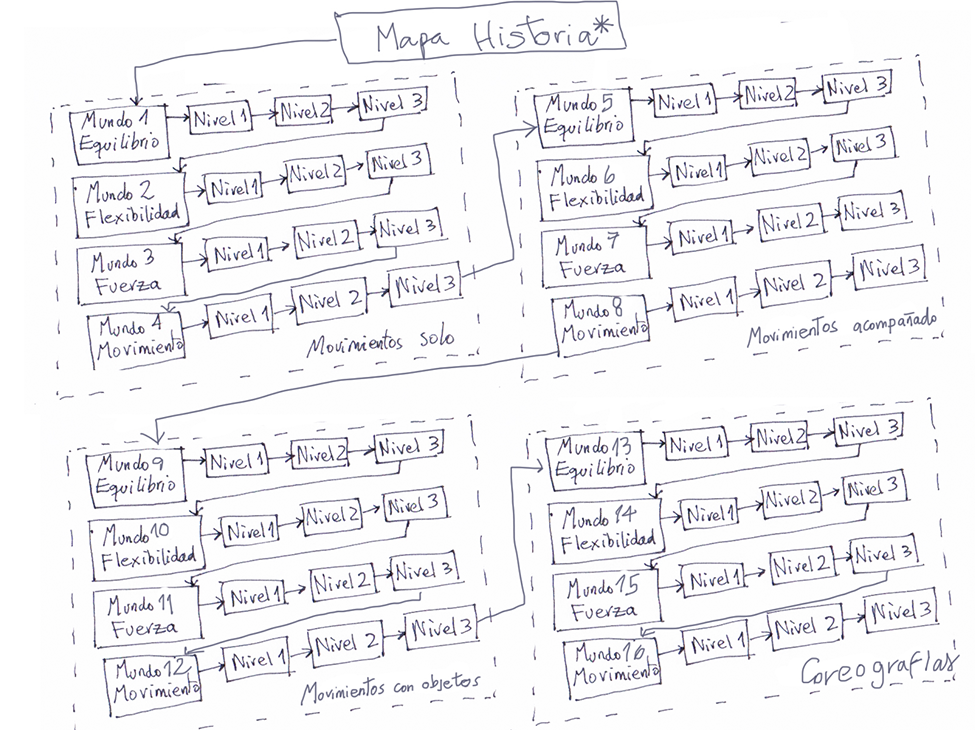 Mapa Historia*
Mundo 1
Equilibrio
Nivel 1
Nivel 2
Nivel 3
Mundo 2
Flexibilidad
Nivel 1
Nivel 2
Nivel 3
Mundo 3
Fuerza
Nivel 1
Nivel 2
Nivel 3
Mundo 4
Movimiento
Nivel 1
Nivel 2
Nivel 3
Movimientos solo
Mundo 5
Equilibrio
Nivel 1
Nivel 2
Nivel 3
Mundo 6
Flexibilidad
Nivel 1
Nivel 2
Nivel 3
Mundo 7
Fuerza
Nivel 1
Nivel 2
Nivel 3
Mundo 8
Movimiento
Nivel 1
Nivel 2
Nivel 3
Movimientos acompañado
Mundo 9
Equilibrio
Nivel 1
Nivel 2
Nivel 3
Mundo 10
Flexibilidad
Nivel 1
Nivel 2
Nivel 3
Mundo 11
Fuerza
Nivel 1
Nivel 2
Nivel 3
Mundo 12
Movimiento
Nivel 1
Nivel 2
Nivel 3
Movimientos con objetos
Mundo 13
Equilibrio
Nivel 1
Nivel 2
Nivel 3
Mundo 14
Flexibilidad
Nivel 1
Nivel 2
Nivel 3
Mundo 15
Fuerza
Nivel 1
Nivel 2
Nivel 3
Mundo 16
Movimiento
Nivel 1
Nivel 2
Nivel 3
Coreografías